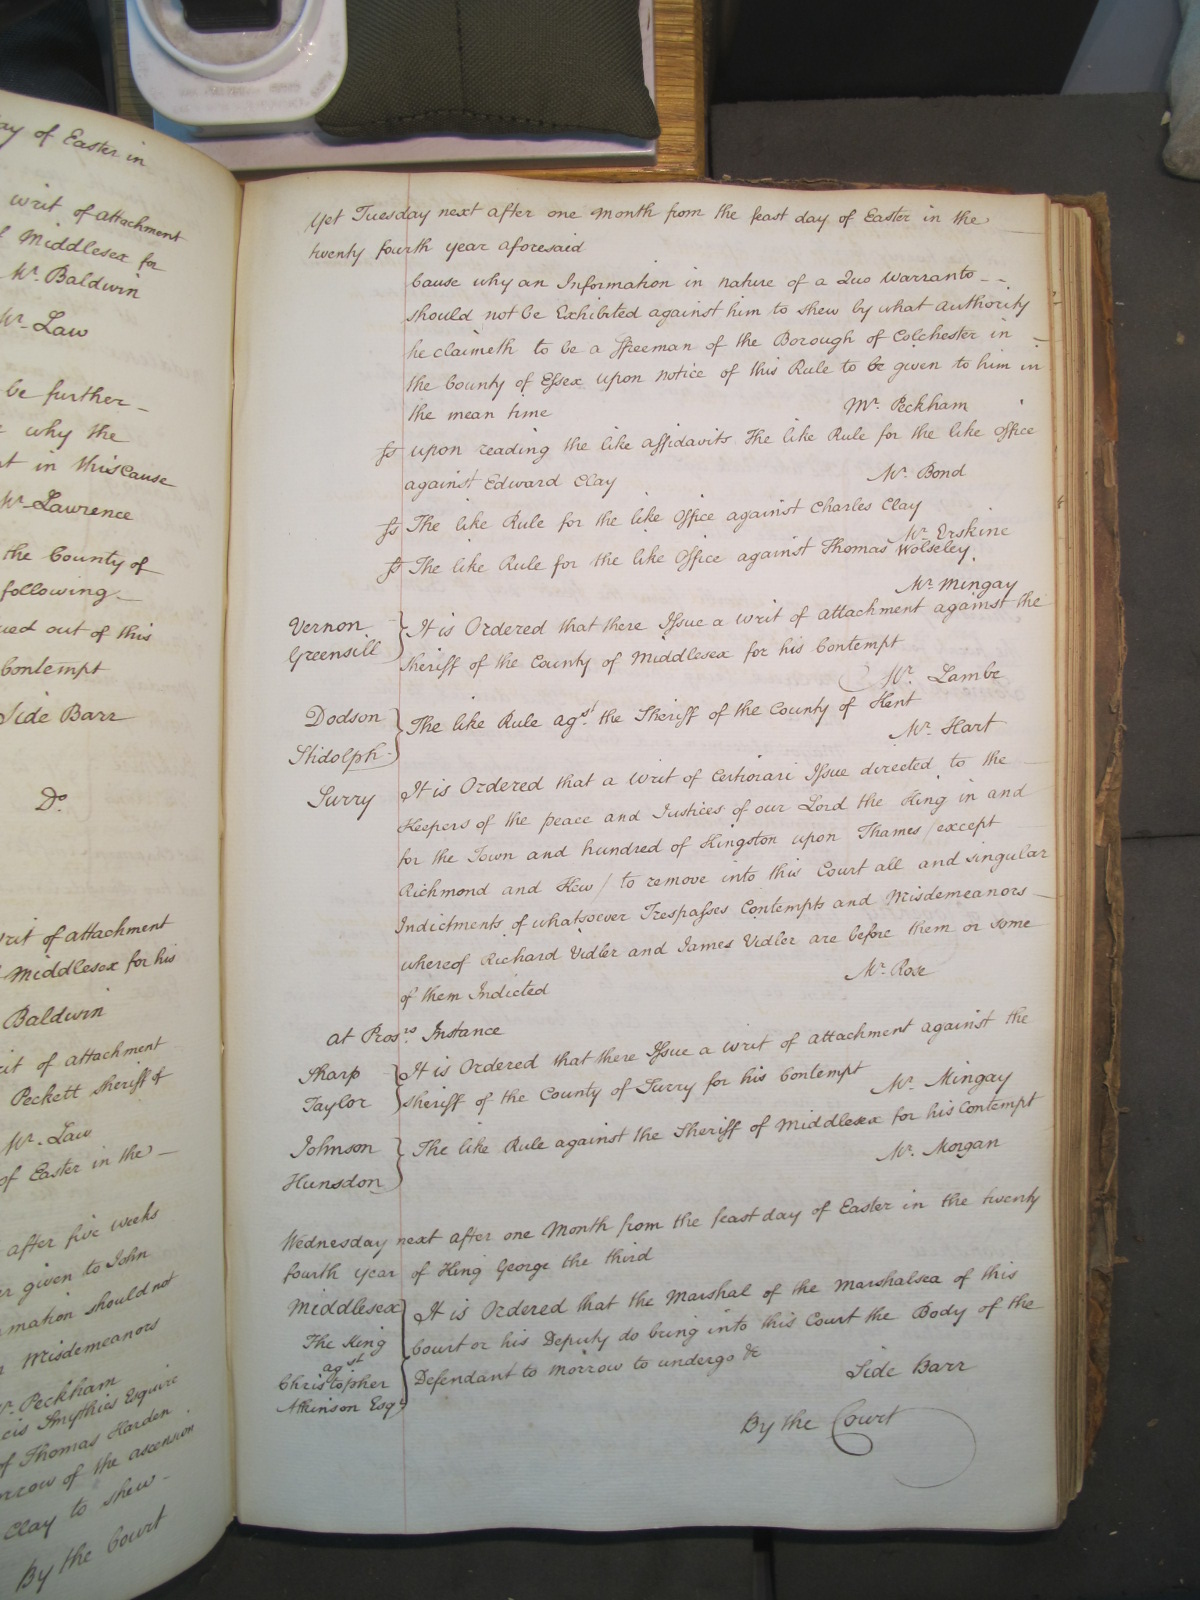 ay of Easter in
writ of attachment
Middlesex for
Mr. Baldwin
Mr. Law
be further
why the
in this Cause
Mr. Lawrence
the County of
following
ued out of this
Contempt
Side Barr
Do.
writ of attachment
Middlesex for his
Baldwin
it of attachment
Peckett sheriff of
Mr. Law
of Easter in the
after five weeks
given to John
mation should not
Misdemeanors
Mr. Peckham
cis Smythies Esquire
of Thomas Harden
rrow of the ascension
Clay to shew
By the Court
Yet Tuesday next after one Month from the feast day of Easter in the
twenty fourth year aforesaid
Cause why an Information in nature of a Quo Warranto
should not be Exhibited against him to shew by what authority
he claimeth to be a ffreeman of the Borough of Colchester in
the County of Essex upon notice of this Rule to be given to him in
the mean time
Mr. Peckham
ss upon reading the like affidavits The like Rule for the like Office
against Edward Clay
Mr. Bond
ss The like Rule for the like Office against Charles Clay
Mr. Erskine
ss The like Rule for the like Office against Thomas Wolseley.
Mr. Mingay
Vernon
Greensill
It is Ordered that there Issue a writ of attachment against the
Sheriff of the County of Middlesex for his Contempt
Mr. Lambe
Dodson
Stidolph
The like Rule agst. the Sheriff of the County of Kent
Mr. Hart
Surry
It is Ordered that a writ of Certiorari Issue directed to the
Keepers of the peace and Justices of our Lord the King in and
for the Town and hundred of Kingston upon Thames / except
Richmond and Kew / to remove into this Court all and singular
Indictments of whatsoever Trespasses Contempts and Misdemeanors
whereof Richard Vidler and James Vidler are before them or some
of them Indicted
Mr. Rose
at Prosrs. Instance
Sharp
Taylor
It is Ordered that there Issue a writ of attachment against the
sheriff of the County of Surry for his Contempt
Mr. Mingay
Johnson
Hunsdon
The like Rule against the Sheriff of Middlesex for his Contempt
Mr. Morgan
Wednesday next after one Month from the feast day of Easter in the twenty
fourth year of King George the third
Middlesex
The King
agst
Christopher
Atkinson Esqr.
It is Ordered that the Marshal of the Marshalsea of this
Court or his Deputy do bring into this Court the Body of the
Defendant to Morrow to undergo &c
Side Barr
By the Court